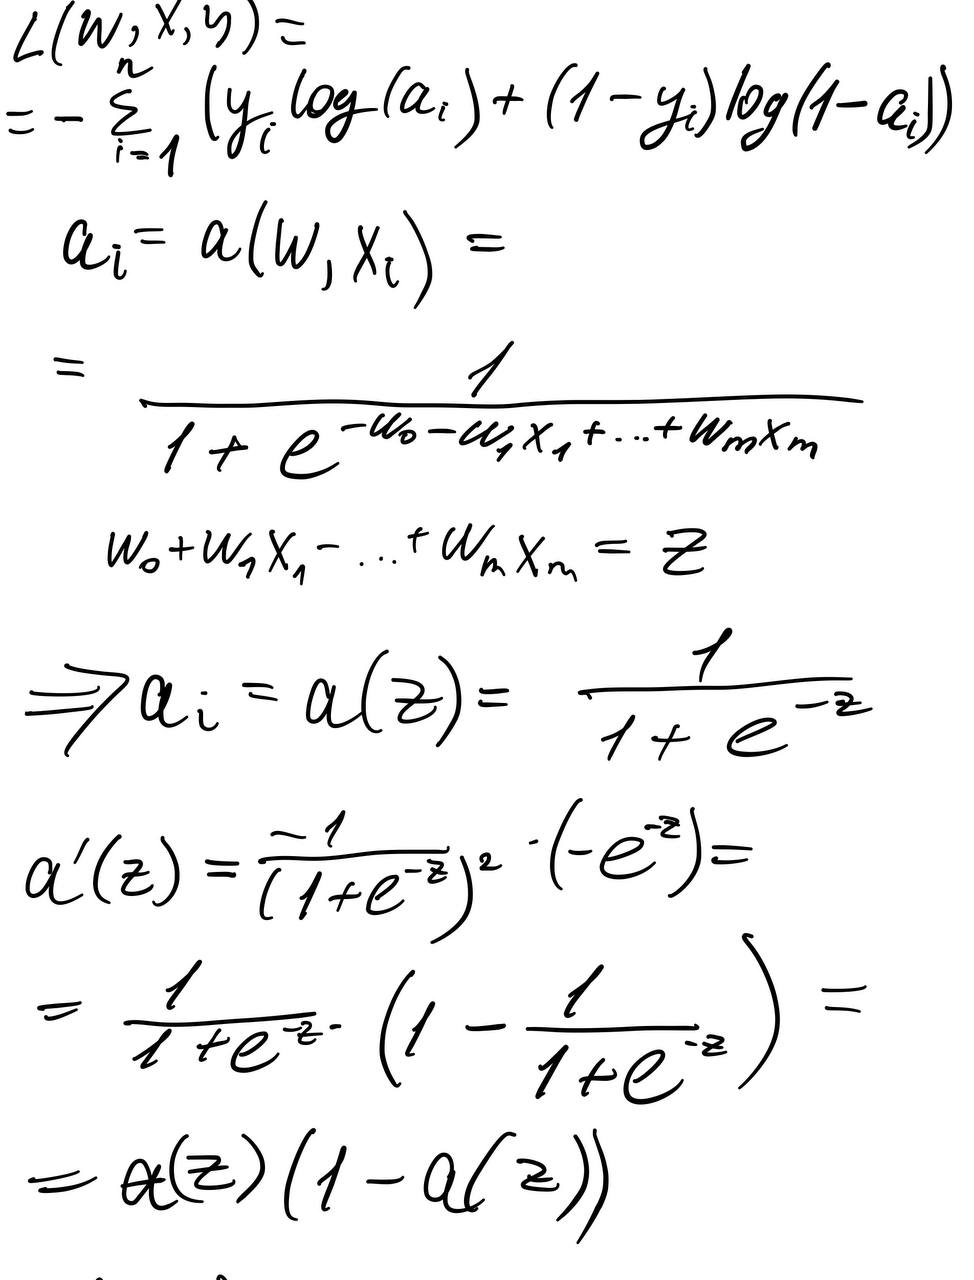 L(w, x, y) =
= - Σ_{i=1}^{n} (y_i log(a_i) + (1 - y_i) log(1 - a_i))
a_i = a(w, x_i) =
= 1 / (1 + e^{-w_0 - w_1 x_1 + ... + w_m x_m})
w_0 + w_1 x_1 - ... + w_m x_m = z
⇒ a_i = a(z) = 1 / (1 + e^{-z})
a'(z) = -1 / (1 + e^{-z})^2 · (-e^{-z}) =
= 1 / (1 + e^{-z}) · (1 - 1 / (1 + e^{-z})) =
= a(z)(1 - a(z))